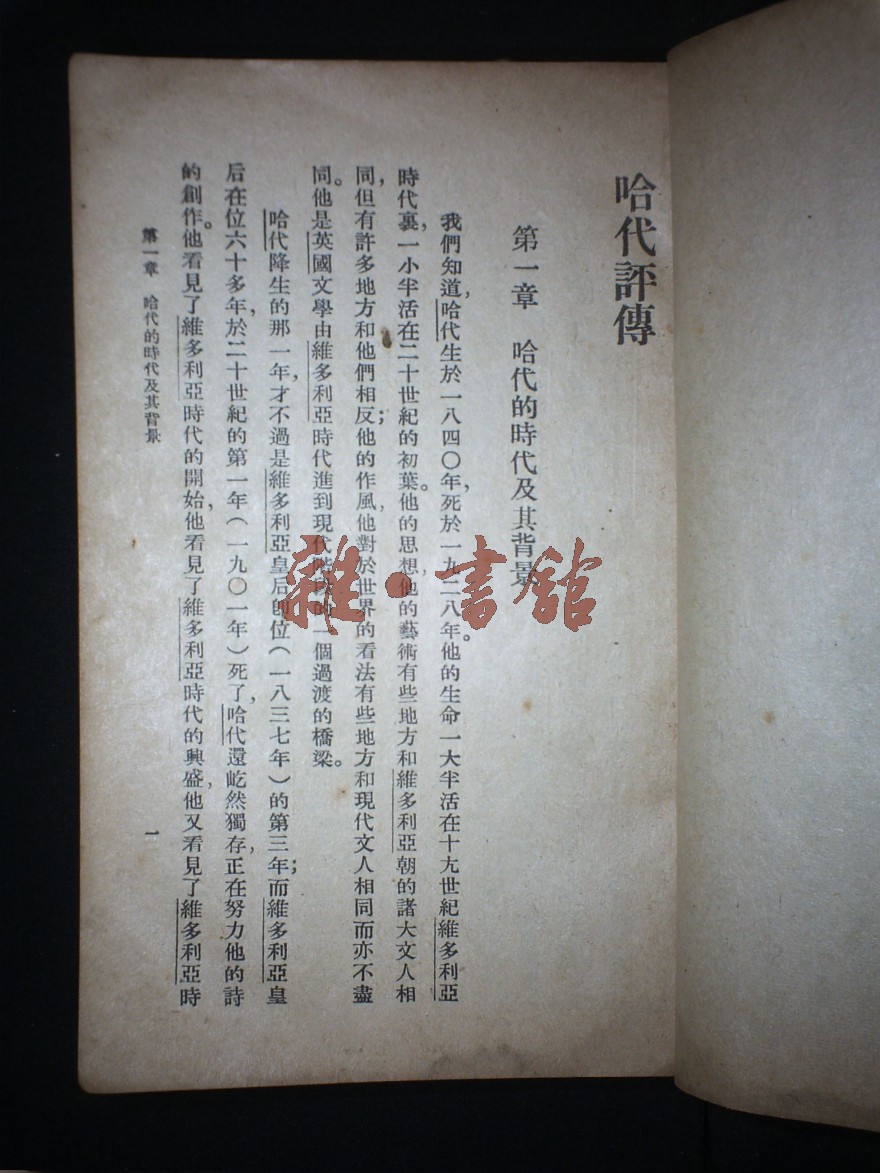 哈代評傳
第一章　哈代的時代及其背景
我們知道，哈代生於一八四〇年，死於一九二八年。他的生命一大半活在十九世紀維多利亞
時代裏，一小半活在二十世紀的初葉。他的思想，他的藝術有些地方和維多利亞朝的諸大文人相
同，但有許多地方和他們相反；他的作風，他對於世界的看法有些地方和現代文人相同而亦不盡
同。他是英國文學由維多利亞時代進到現代階段的一個過渡的橋梁。
哈代降生的那一年，才不過是維多利亞皇后卽位（一八三七年）的第三年；而維多利亞皇
后在位六十多年，於二十世紀的第一年（一九〇一年）死了，哈代還屹然獨存，正在努力他的詩
的創作。他看見了維多利亞時代的開始，他看見了維多利亞時代的興盛，他又看見了維多利亞時
第一章　哈代的時代及其背景
一
雜·書館